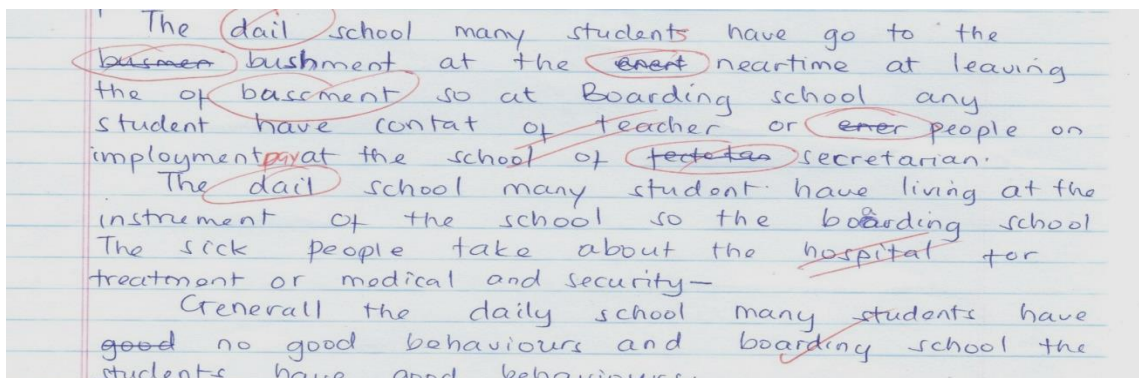 The dail school many students have go to the
busmen bushment at the enert neartime at leaving
the of bassment so at Boarding school any
student have contat of teacher or ener people on
imployment pay at the school of secretarian.
The dail school many student have living at the
instrument of the school so the boarding school
The sick people take about the hospital for
treatment or medical and security-
Generall the daily school many students have
good no good behaviours and boarding school the
students have good behaviours.